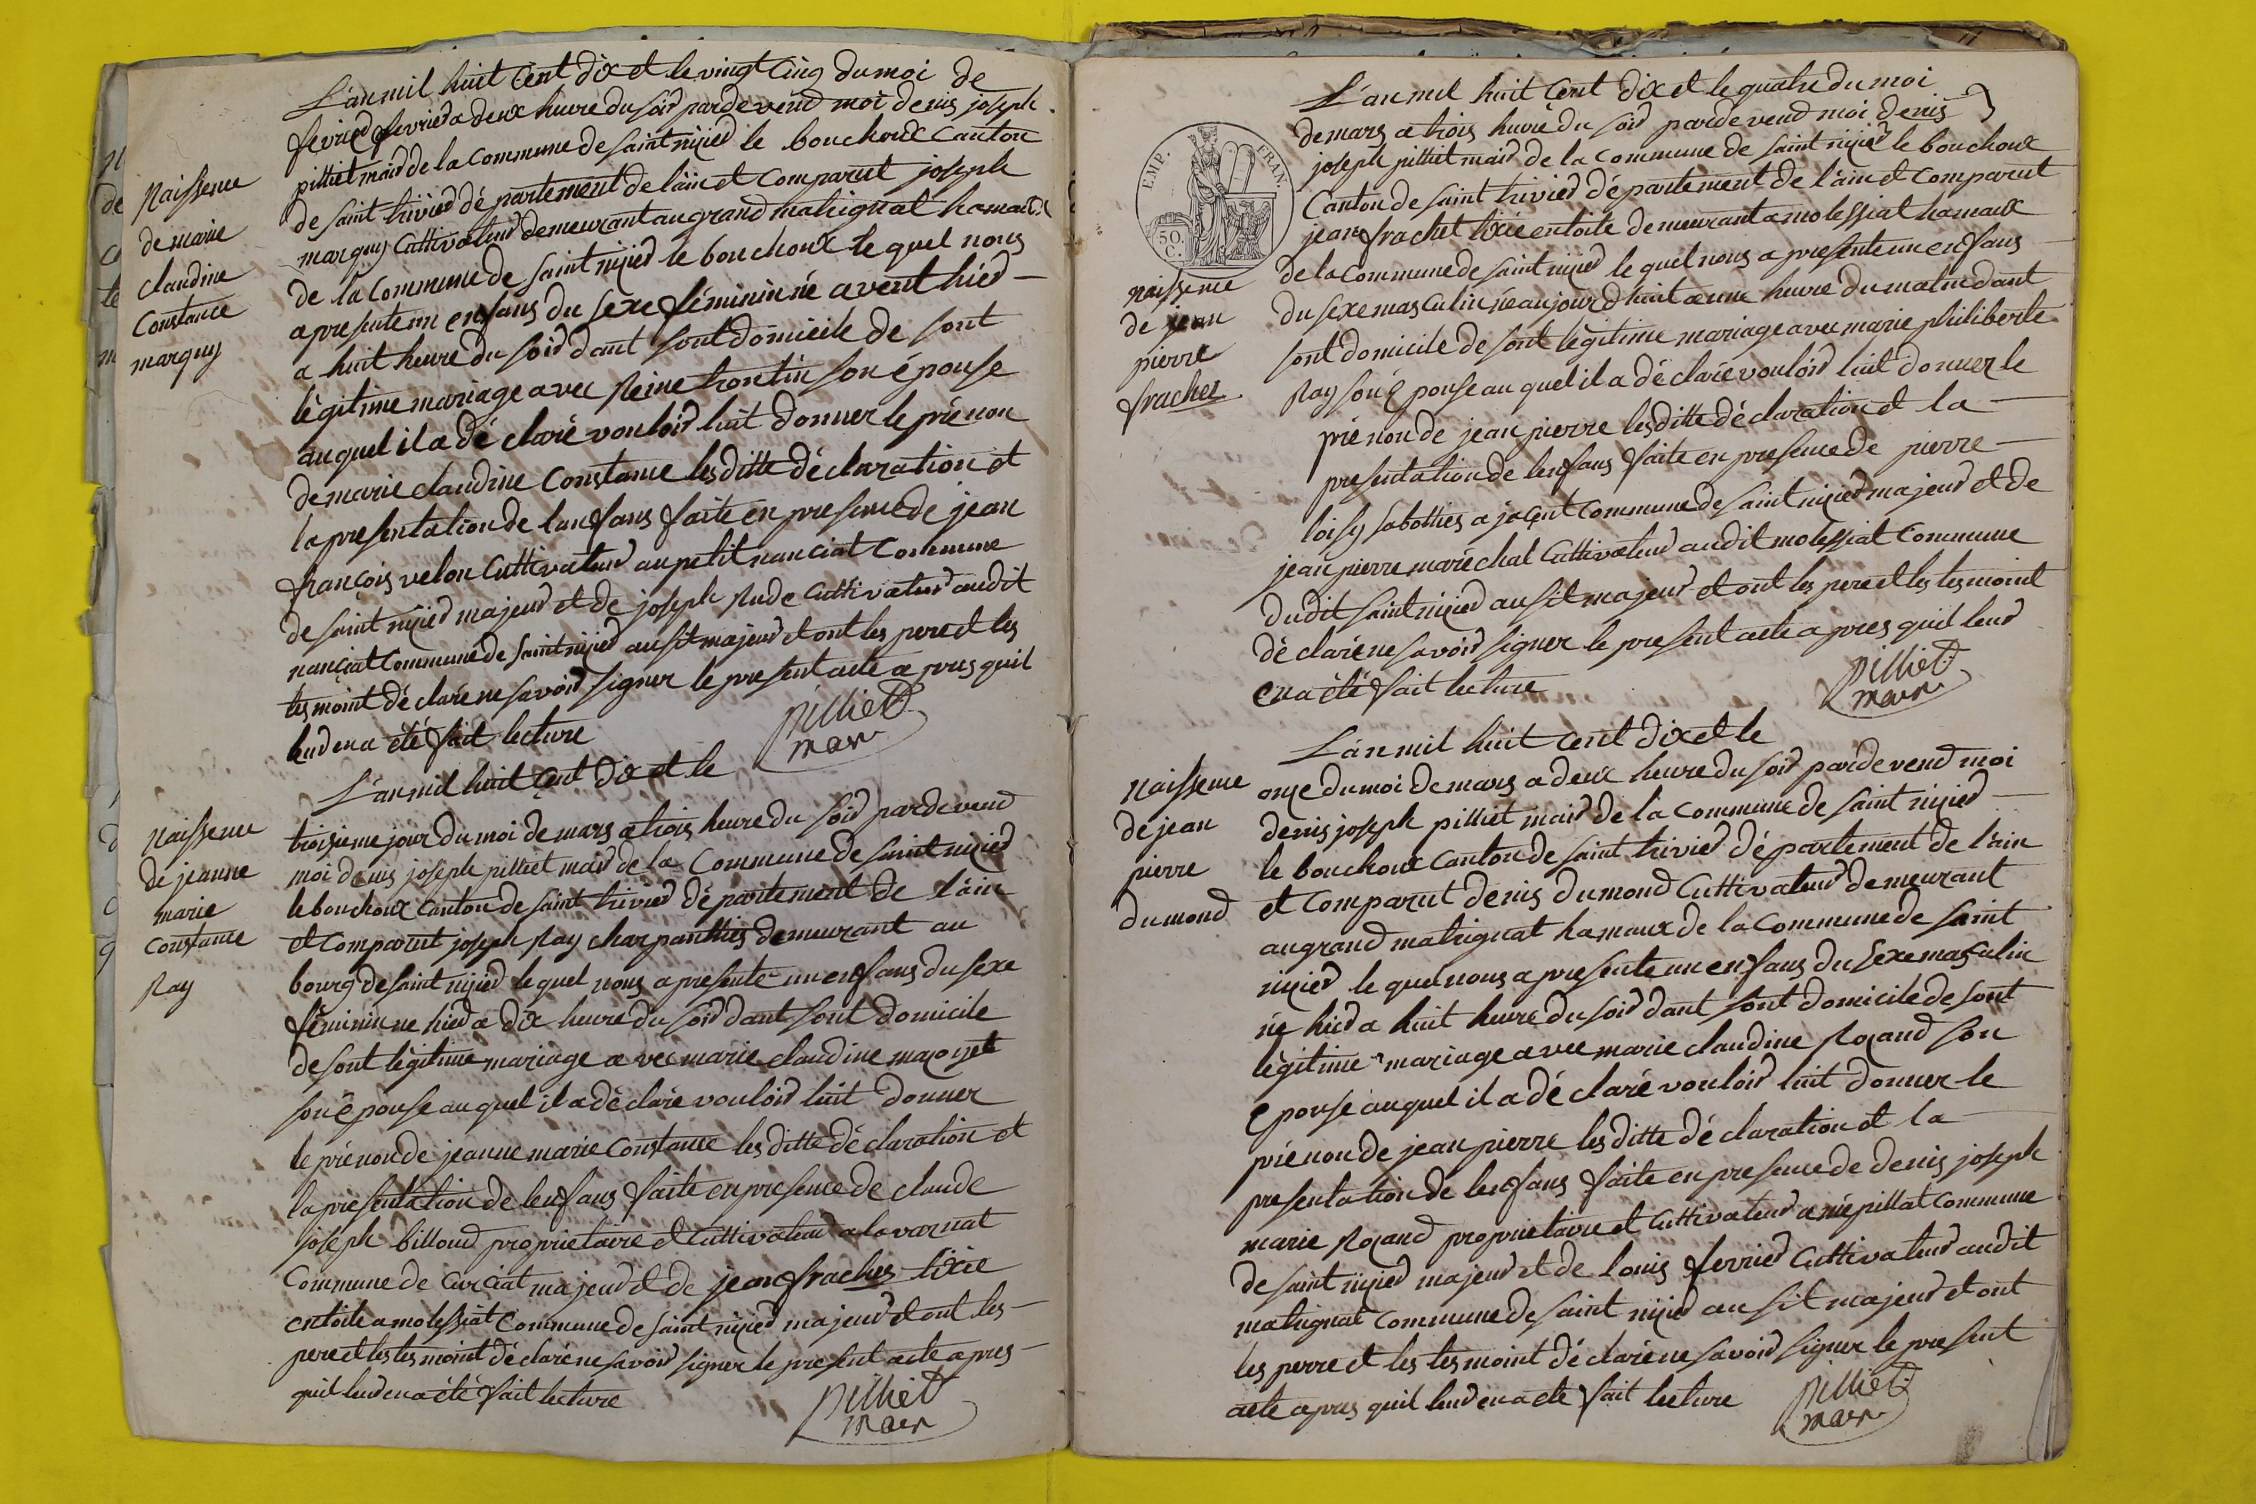 L'an mil huit cent dix et le vingt cinq du moi de
fevrier fevrier a deux heure du soir pardevend moi denis joseph
pilliet mair de la commune de saint nizier le bouchoux canton
de saint trivier département de l'ain et comparut joseph
marguy cultivateur demeurant au grand matrignat hamaux
de la commune de saint nizier le bouchoux le quel nous
a presente un enfans du sexe féminin né avent hier
a huit heure du soir dant sont domicile de sont
légitime mariage avec Reine trontin son épouse
au quel il a déclaré vouloir luit donner le prénon
de marie claudine Constance les ditte déclaration et
la presentation de lanfans faite en presence de jean
françois velon cultivateur au petit nanciat Commune
de saint nizier majeur et de joseph Rude cultivateur audit
nançiat Commune de saint nizier ausit majeur et ont les pere et les
tesmoint déclaré ne savoir signer le present acte a pres quil
leur en a été fait lecture
pilliet
mair
Naissence
de marie
claudine
Constance
marguy
L'an mil huit cent dix et le
troisieme jour du moi de mars a trois heure du soir pardevend
moi denis joseph pilliet mair de la Commune de saint nizier
le bouchoux canton de saint trivier département de l'ain
et comparut joseph Ray charpanthier demeurant au
bourg de saint nizier le quel nous a presente un enfans du sexe
féminin ne hier a dix heure du soir dant sont domicile
de sont légitime mariage a vec marie claudine mazoyet
son épouse au quel il a déclaré vouloir luit donner
le prénon de jeanne marie Constance les ditte déclaration et
la presentation de lenfans faite en presence de claude
joseph billoud proprietaire et cultivateur a la varnat
Commune de Curciat majeur et de jean frachet tixie
entoile a molessiat Commune de saint nizier majeur et ont les
pere et les tesmoint déclaré ne savoir signer le present acte a pres
quil leur en a été fait lecture
pilliet
mair
Naissence
de jeanne
marie
constance
Ray
L'an mil huit cent dix et le quatre du moi
de mars a trois heure du soir pardevend moi denis
joseph pilliet mair de la commune de saint nizier le bouchoux
Canton de saint trivier département de l'ain et comparut
jean frachet tixié entoile demeurant a molessiat hamaux
de la commune de saint nizier le quel nous a presente un enfans
du sexe masculin né aujourd'huit a une heure du matin dant
sont domicile de sont légitime mariage avec marie philiberte
Ray son épouse au quel il a déclaré vouloir luit donner le
prénon de jean pierre les ditte déclaration et la
presentation de lenfans faite en presence de pierre
loisy sabotties a jaçent commune de saint nizier majeur et de
jean pierre maréchal cultivateur audit molessiat Commune
dudit saint nizier ausit majeur et ont les pere et les tesmoint
déclaré ne savoir signer le present acte a pres quil leur
en a été fait lecture
pilliet
mair
EMP. FRAN.
50.
C.
naissence
de jean
pierre
frachet
L'an mil huit cent dix et le
onze du moi de mars a deux heure du soir pardevend moi
denis joseph pilliet mair de la commune de saint nizier
le bouchoux canton de saint trivier département de l'ain
et comparut denis dumond cultivateur demeurant
au grand matrignat hamaux de la commune de saint
nizier le quel nous a presente un enfans du sexe masculin
né hier a huit heure du soir dant sont domicile de sont
légitime mariage avec marie claudine Rozand son
epouse auquel il a déclaré vouloir luit donner le
prénon de jean pierre les ditte déclaration et la
presentation de lenfans faite en presence de denis joseph
marie Rozand proprietaire et cultivateur a népillat commune
de saint nizier majeur et de louis ferrier cultivateur audit
matrignat commune de saint nizier ausit majeur et ont
les perre et les tesmoint déclaré ne savoir signer le present
acte apres quil leur en a été fait lecture
pilliet
mair
Naissence
de jean
pierre
dumond